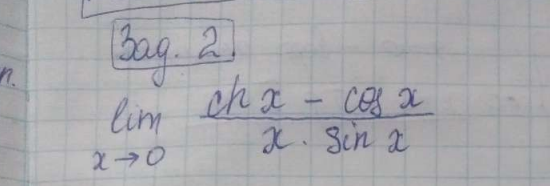 Зад. 2.
п.
lim x→0 (ch x - cos x) / (x · sin x)